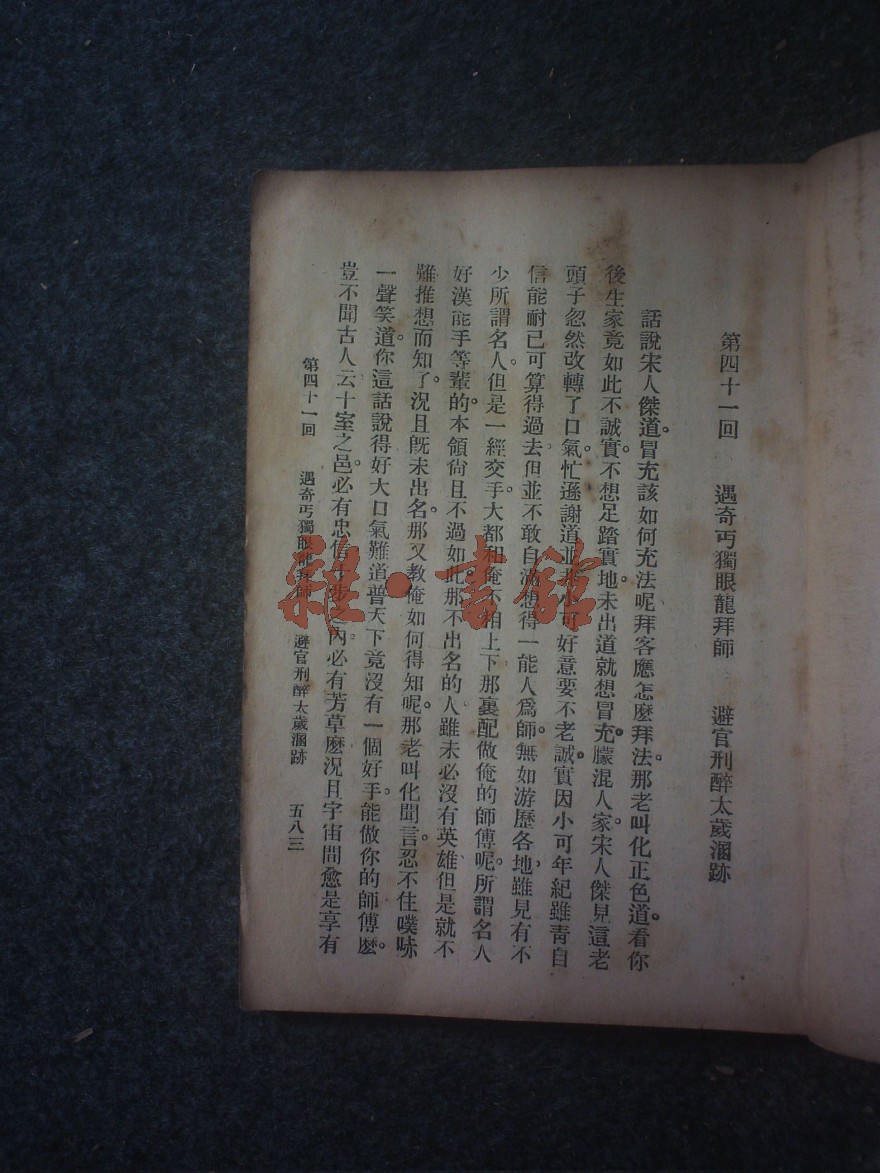 第四十一回　遇奇丐獨眼龍拜師　避官刑醉太歲溷跡
話說宋人傑道。冒充該如何充法呢拜客應怎麼拜法。那老叫化正色道。看你
後生家竟如此不誠實。不想足踏實地。未出道就想冒充。朦混人家。宋人傑見這老
頭子忽然改轉了口氣。忙遜謝道並非小可好意要不老誠。實因小可年紀雖青自
信能耐已可算得過去但並不敢自滿想得一能人爲師。無如游歷各地，雖見有不
少所謂名人。但是一經交手。大都和俺不相上下那裏配做俺的師傅呢。所謂名人
好漢能手等輩的本領尙且不過如此。那不出名的人雖未必沒有英雄但是就不
難推想而知了。況且旣未出名。那又教俺如何得知呢。那老叫化聞言。忍不住噗哧
一聲笑道。你這話說得好大口氣難道普天下竟沒有一個好手。能做你的師傅麼。
豈不聞古人云十室之邑。必有忠信十步之內。必有芳草麼況且宇宙間愈是享有
第四十一回　遇奇丐獨眼龍拜師　避官刑醉太歲溷跡　五八三
雜·書館